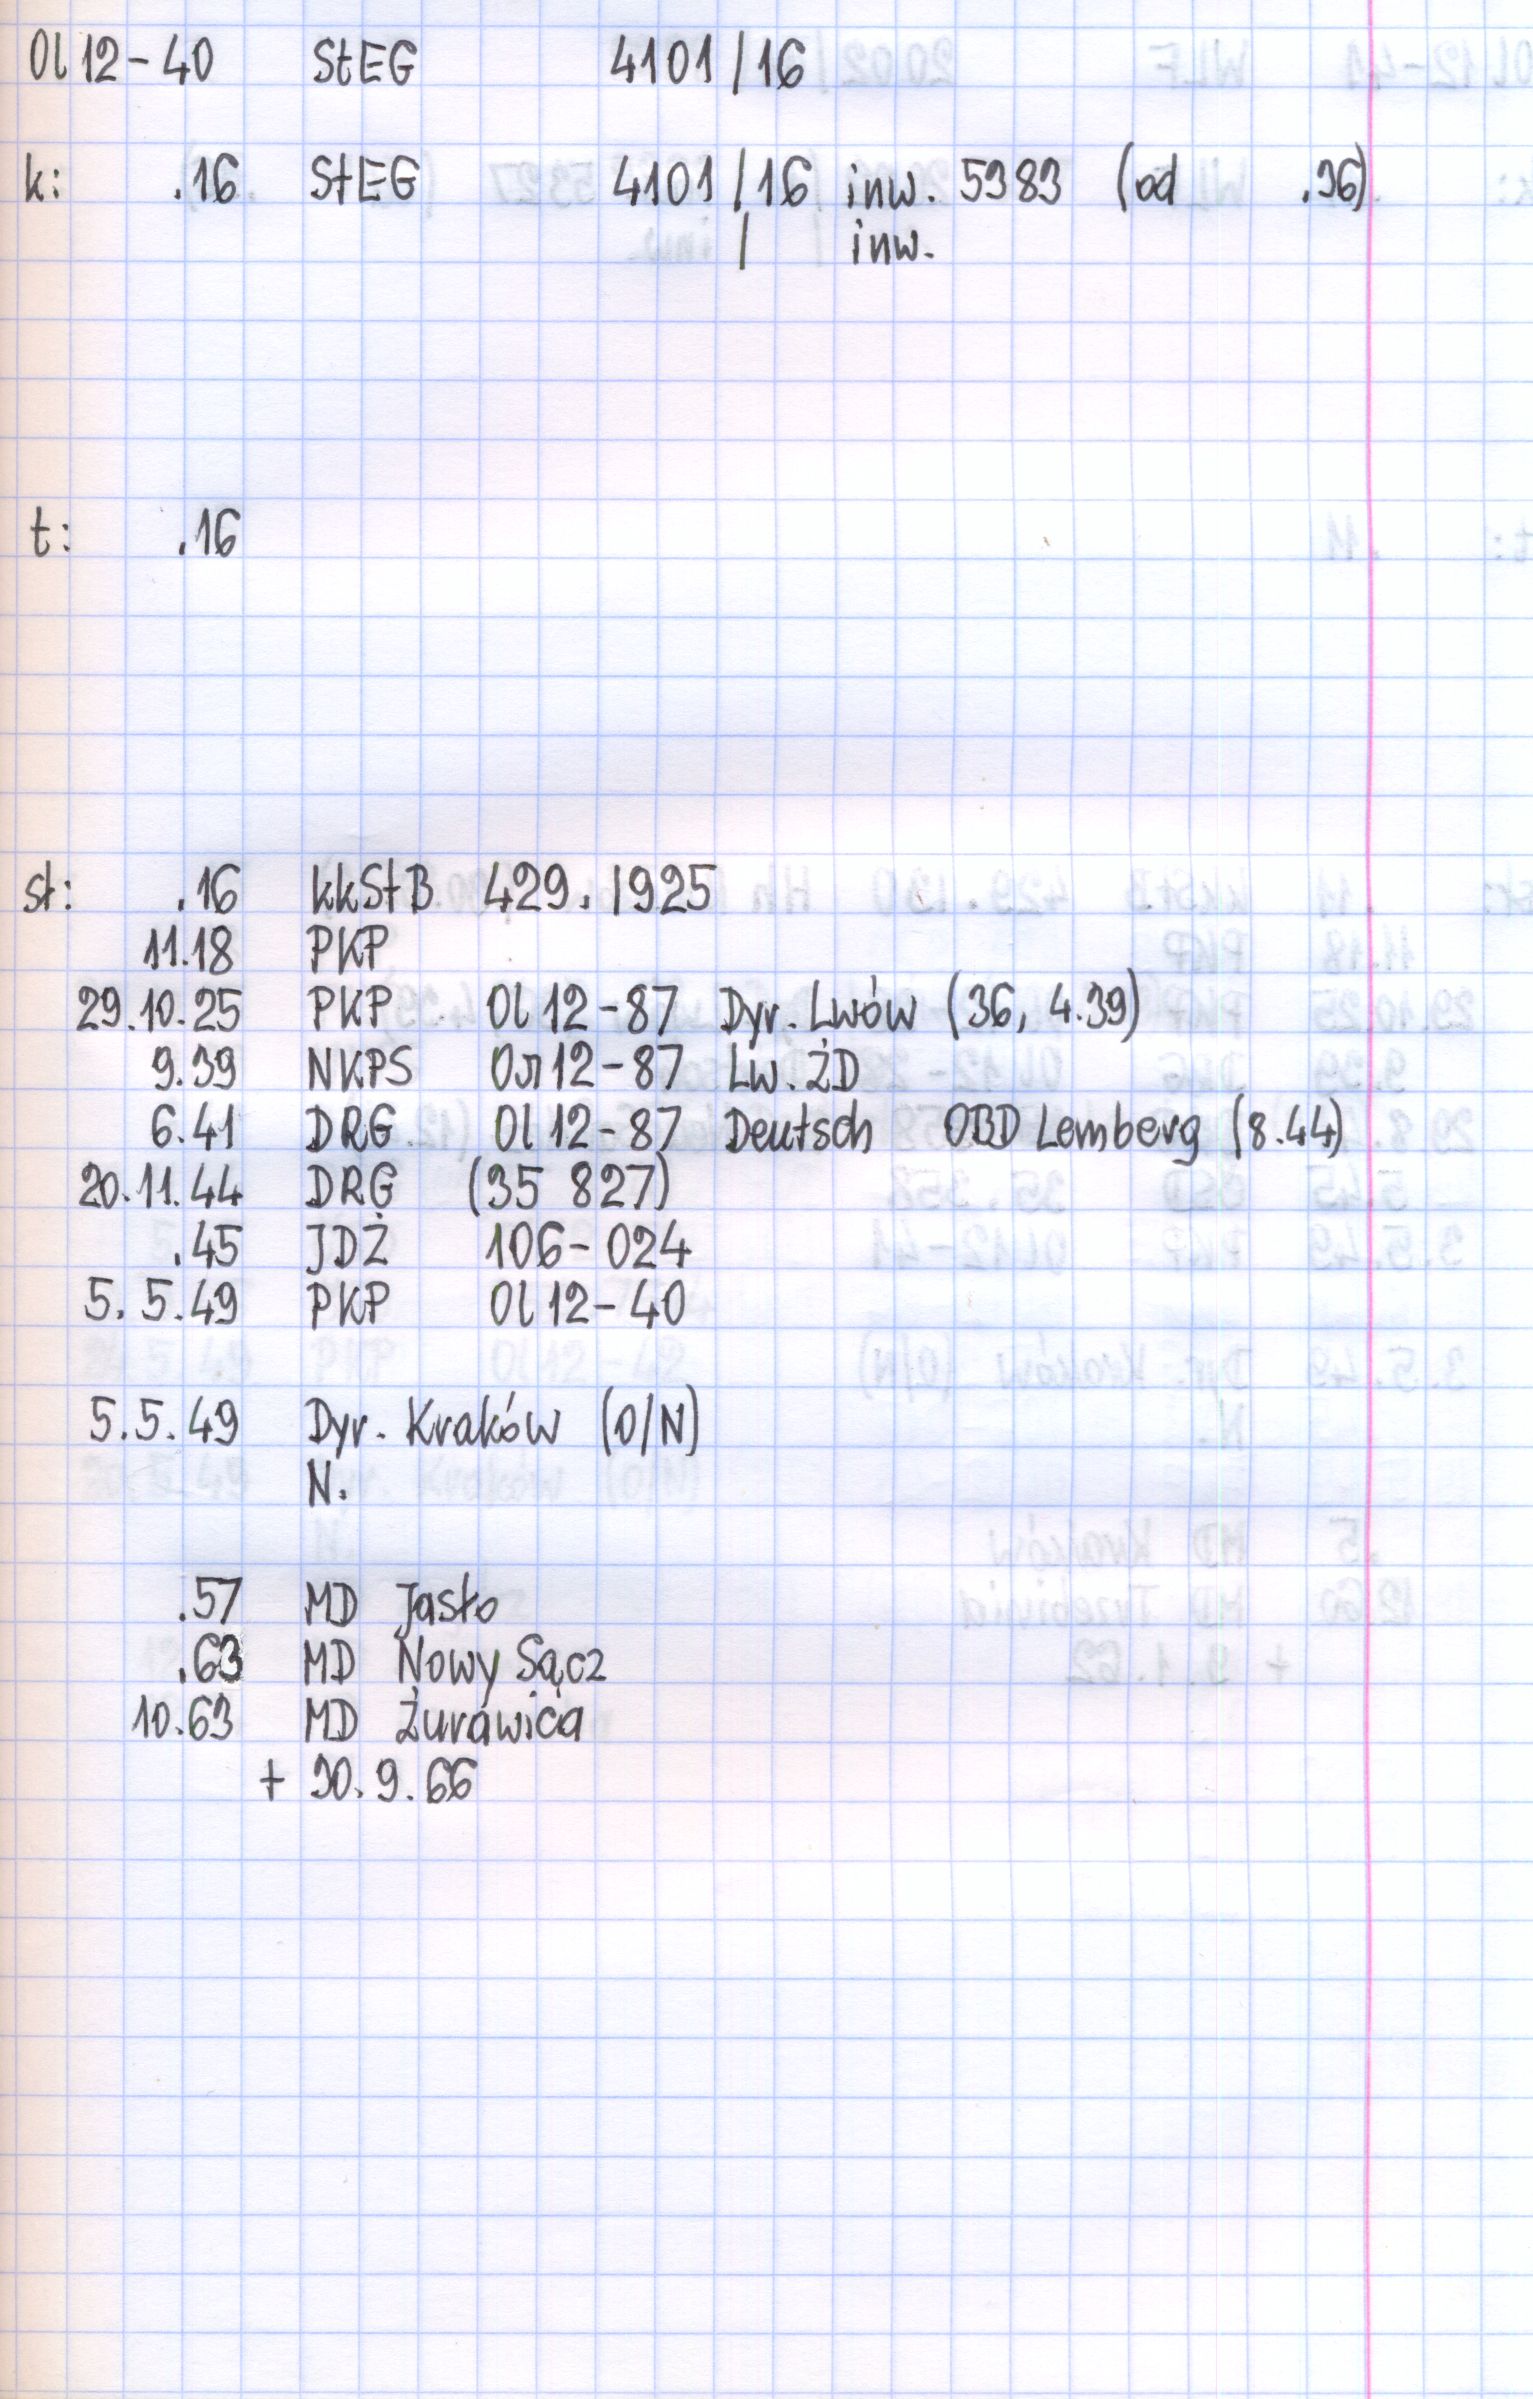 Ol 12-40 StEG 4101/16
k: .16 StEG 4101/16 inw. 5383 (od .36)
/ inw.
t: .16
st: .16 kkStB 429.1925
11.18 PKP
29.10.25 PKP Ol 12-87 Dyr. Lwów (36, 4.39)
9.39 NKPS Ол 12-87 Lw. ŻD
6.41 DRG Ol 12-87 Deutsch OBD Lemberg (8.44)
20.11.44 DRG (35 827)
.45 JDŻ 106-024
5.5.49 PKP Ol 12-40
5.5.49 Dyr. Kraków (O/N)
N.
.57 MD Jasło
.63 MD Nowy Sącz
10.63 MD Żurawica
+ 30.9.66